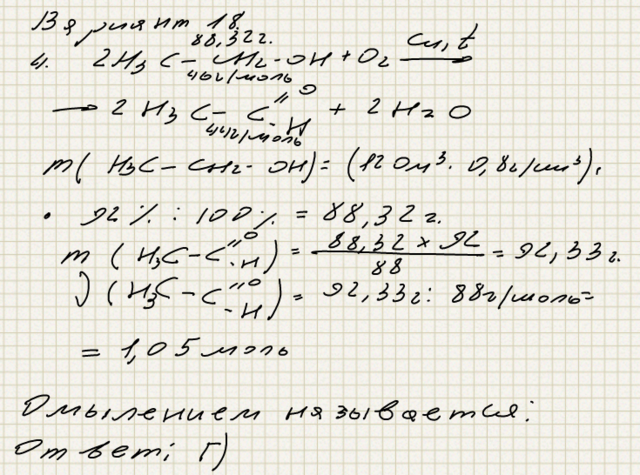 Вариант 18.
88,32г.
4. 2H₃C-CH₂-OH+O₂ Cu,t
46г/моль
→ 2H₃C-C=O-H + 2H₂O
44г/моль
m(H₃C-CH₂-OH)=(120м³·0,8г/см³)·
· 92% : 100% = 88,32г.
m(H₃C-C=O-H) = 88,32×92/88 = 92,33г.
J(H₃C-C=O-H) = 92,33г: 88г/моль=
= 1,05моль
Омылением называется:
Ответ; Г)